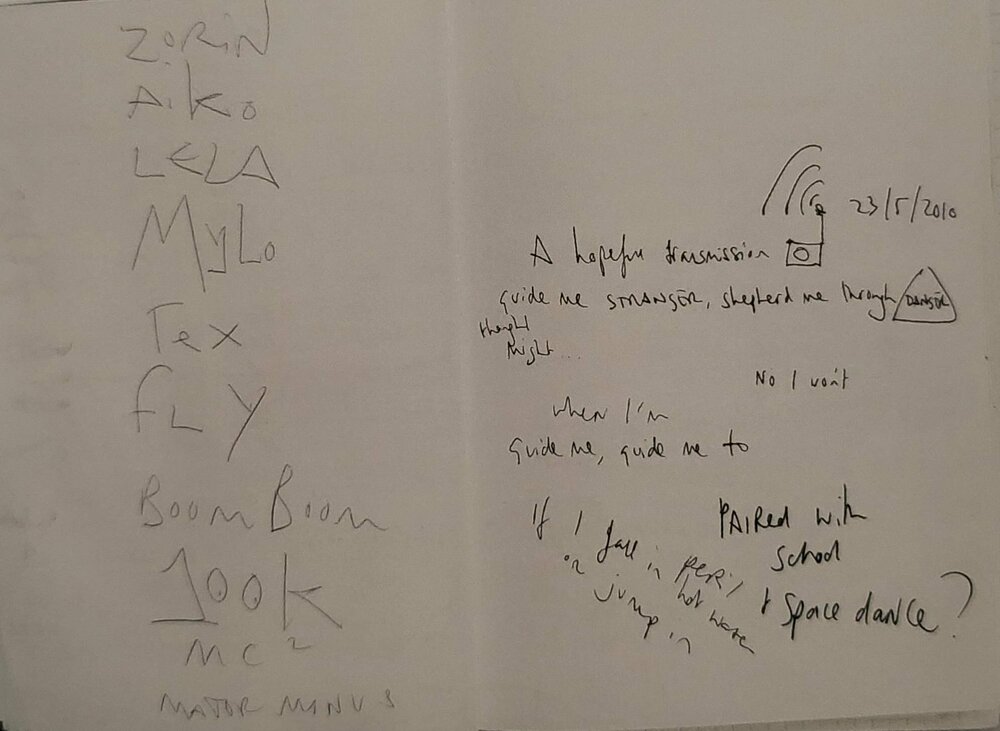 ZORiN
AiKo
LELA
MyLo
Tex
fLy
Boom Boom
100K
MC²
MAJOR MINUS
23/5/2010
A hopeful transmission
guide me STRANGER, shepherd me through DANGER
thought
might...
No I won't
when I'm
guide me, guide me to
If I fall in PERiL
or jump in hot water
PAIRed with
school
+ Space dance?